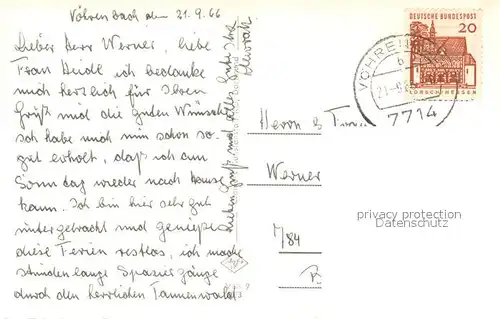 Vöhrenbach den 21.9.66
Lieber Herr Werner, liebe
Frau Heidl, ich bedanke
mich herzlich für Ihren
Gruß und die guten Wünsche
ich habe mich nun schon so-
gut erholt, daß ich am
Sonntag wieder nach Hause
kann. Ich bin hier sehr gut
untergebracht und genieße
diese Ferien restlos, ich mache
stundenlange Spaziergänge
durch den herrlichen Tannenwald
lieben Gruß und alles Gute Ihre
DEUTSCHE BUNDESPOST
20
LORSCH/HESSEN
VÖHREN
b
21.-9.6
7714
Herrn & Frau
Werner
7/84
privacy protection
watermark